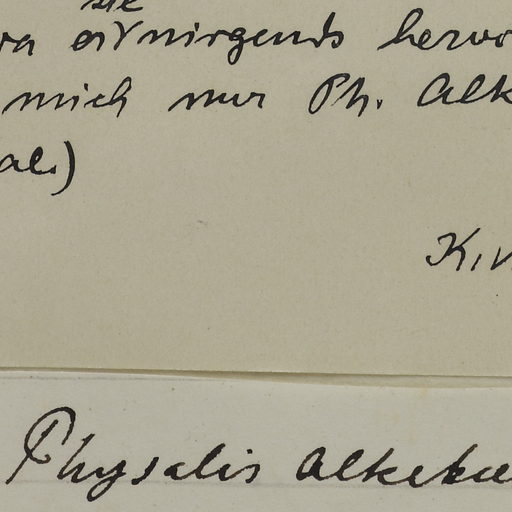 sie
nirgends
mich nur Ph. Alk
al.)
K.
Physalis Alkeke